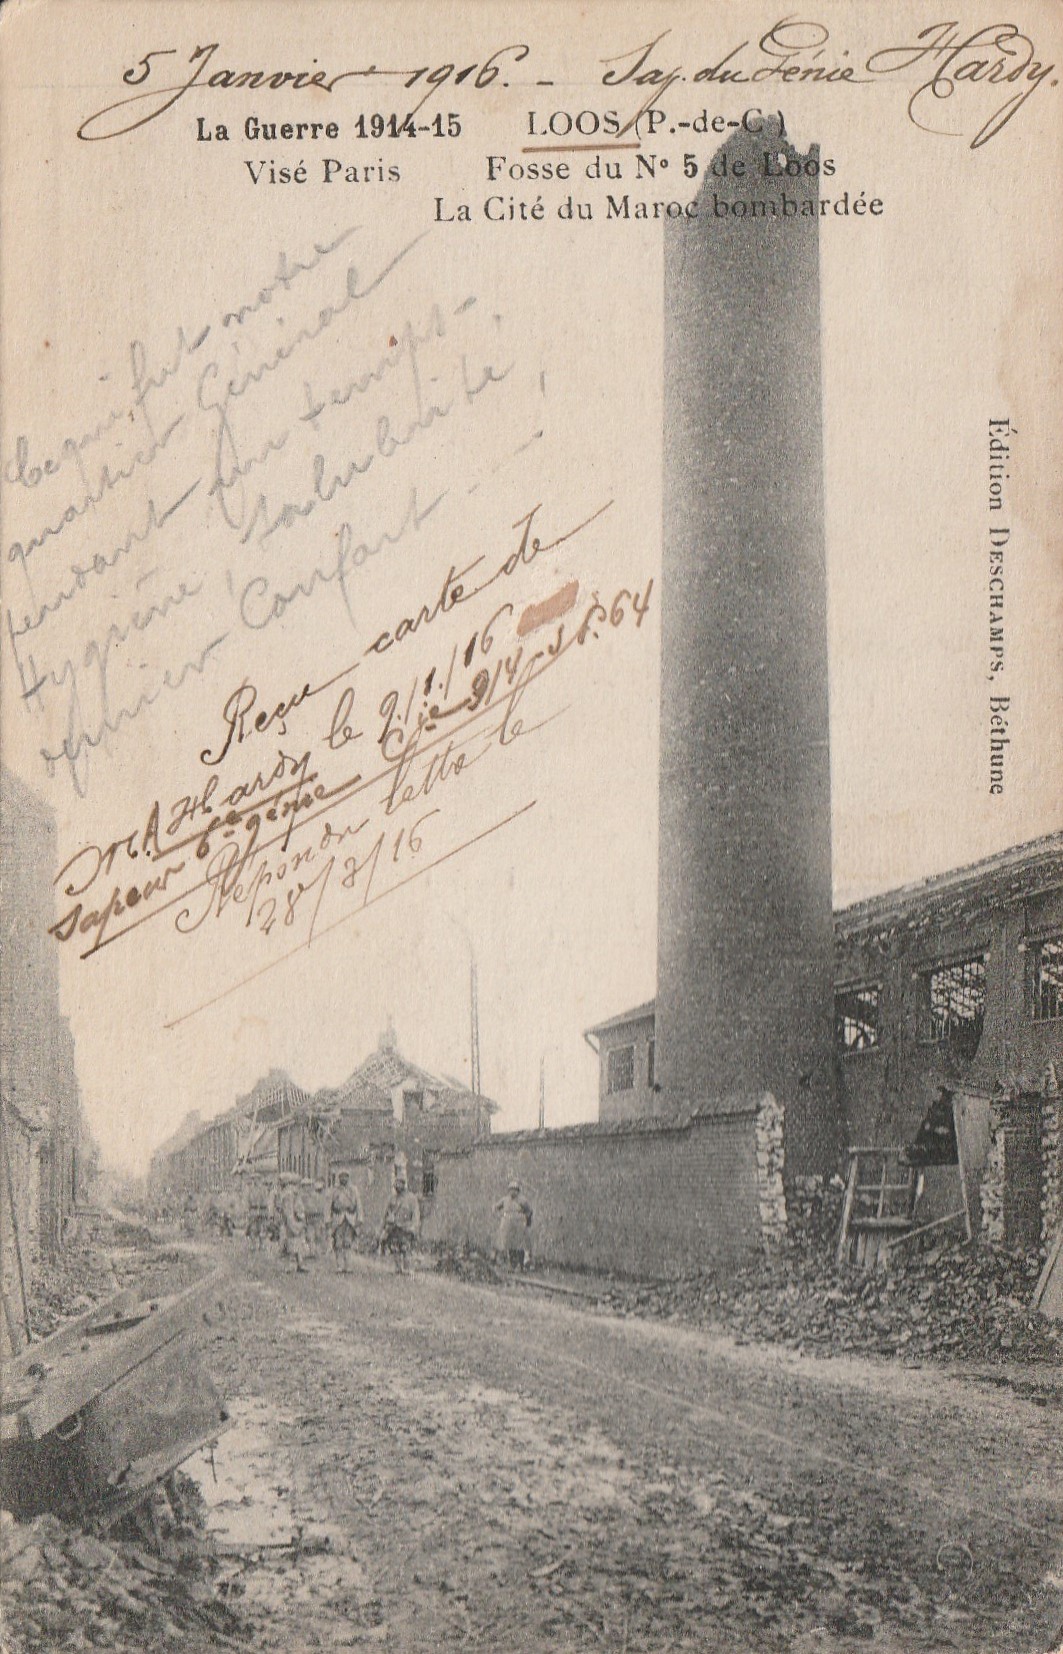 5 Janvier 1916. - Sap. du Génie Hardy.
La Guerre 1914-15
Visé Paris
LOOS (P.-de-C.)
Fosse du N° 5 de Loos
La Cité du Maroc bombardée
Ce qui fut notre
quartier Général
pendant un temps -
Hygiène, Salubrité,
dernier Confort - -
Reçu carte de
Mr Hardy le 9/1/16
Sapeur 6e génie Cie 9/4 - S.P. 64
Répondu lettre le
28/3/16
Édition DESCHAMPS, Béthune